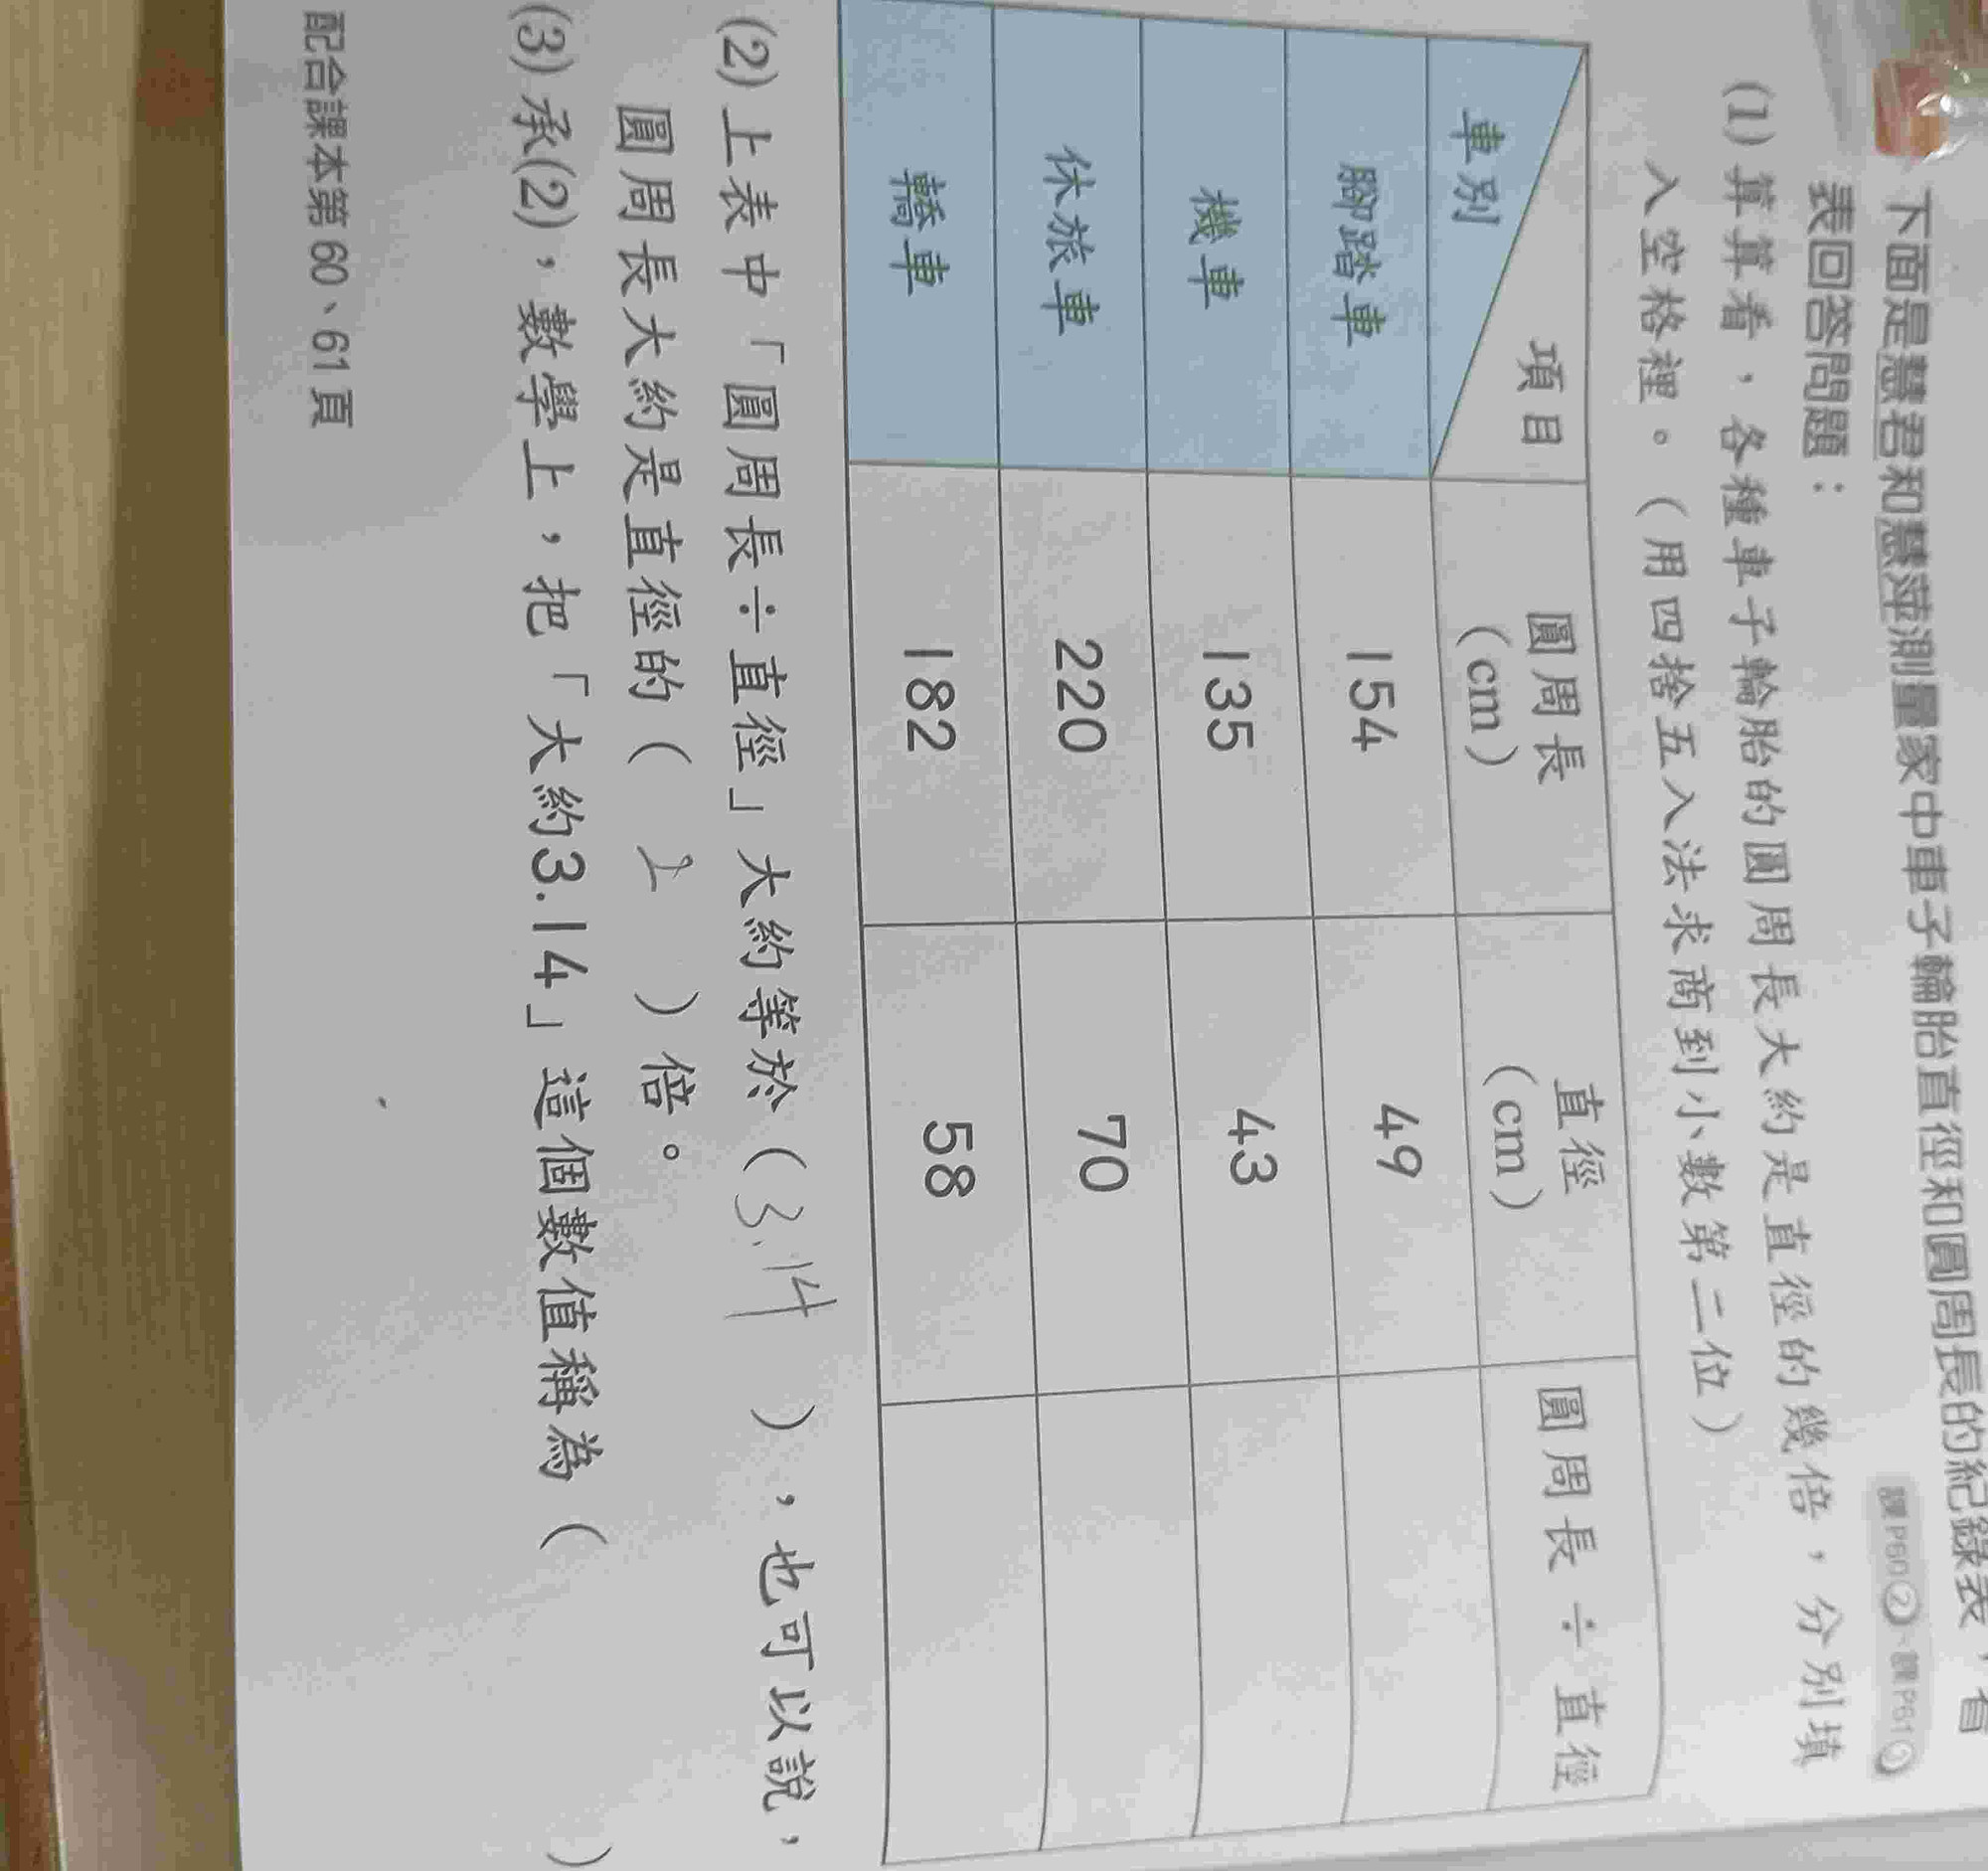 下面是慧君和慧萍測量家中車子輪胎直徑和圓周長的紀錄表，看
表回答問題：
課P60②、課P61
(1) 算算看，各種車子輪胎的圓周長大約是直徑的幾倍，分別填
入空格裡。（用四捨五入法求商到小數第二位）
項目
車別
圓周長
(cm)
直徑
(cm)
圓周長÷直徑
腳踏車 154 49
機車 135 43
休旅車 220 70
轎車 182 58
(2) 上表中「圓周長÷直徑」大約等於（3.14），也可以說，
圓周長大約是直徑的（ 1 ）倍。
(3) 承(2)，數學上，把「大約3.14」這個數值稱為（ ）
配合課本第 60、61 頁